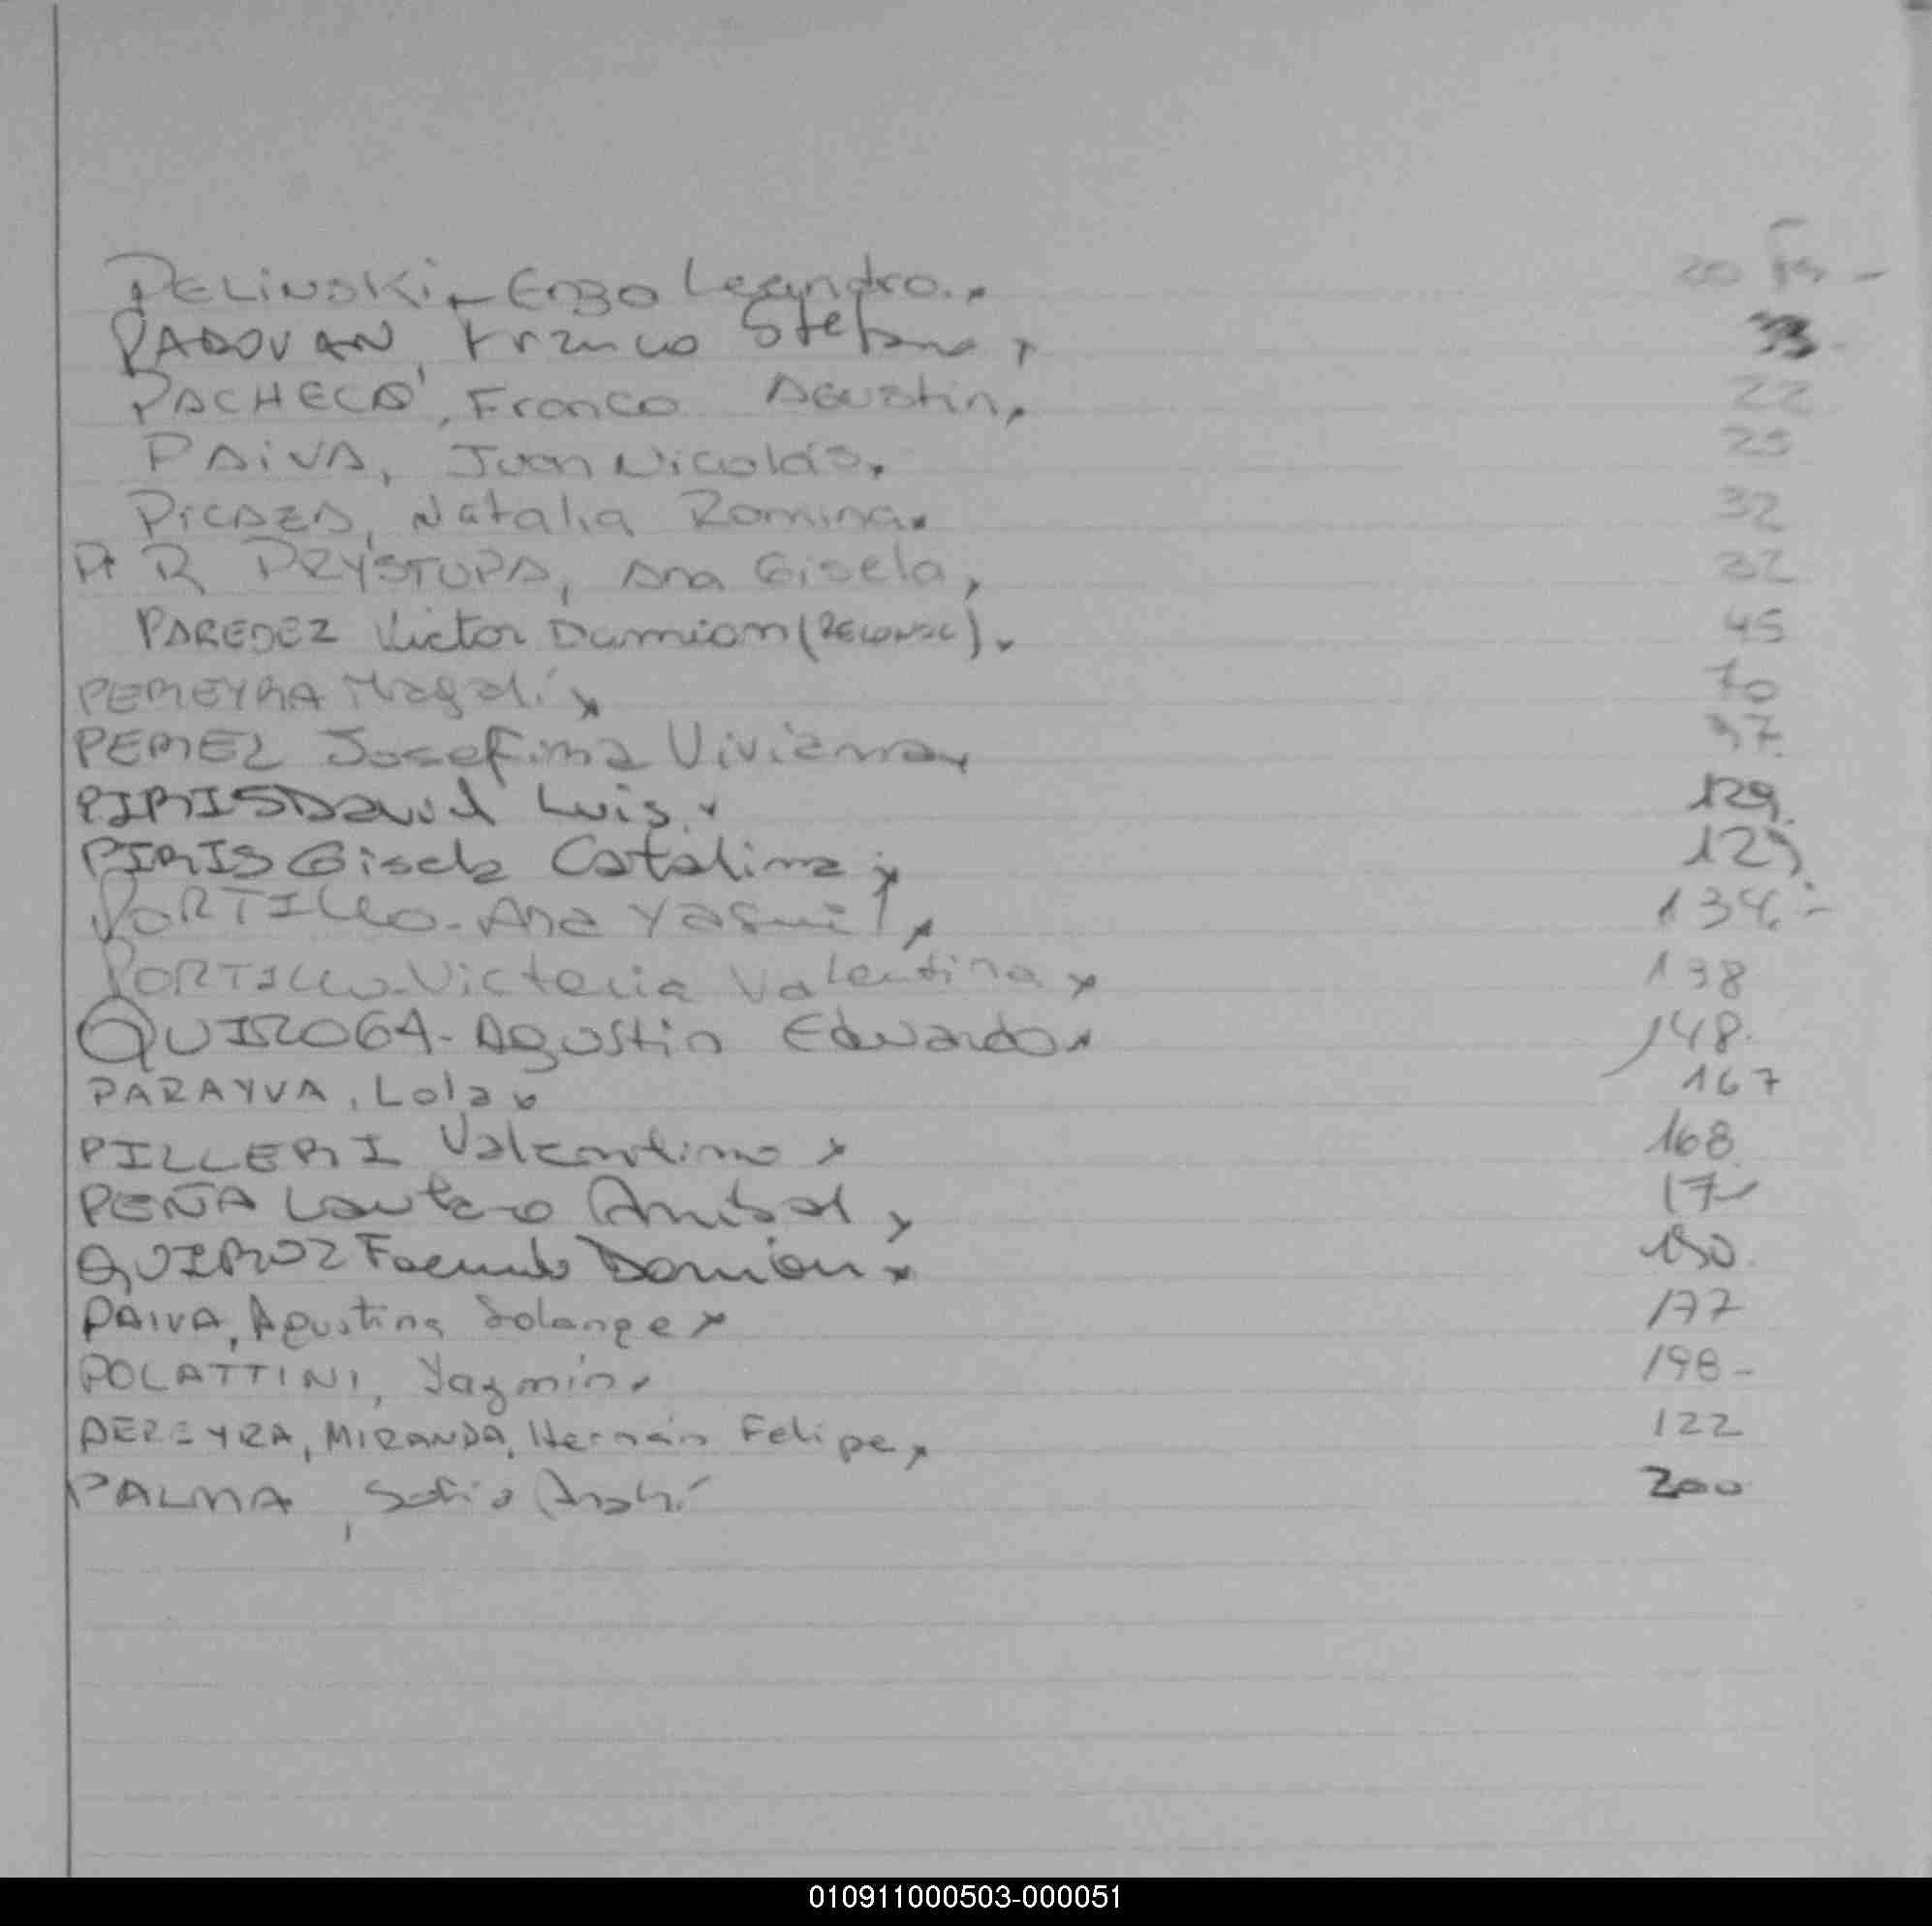 PELINSKI - Enzo Leandro. 20 Fs -
PADOVAN, Franco Stefano 
PACHECO, Franco Agustin, 22
PAIVA, Juan Nicolás. 25
PICAZA, Natalia Romina 32
PRYSTUPA, Ana Gisela, 32
PAREDEZ Victor Damian 45
PEREYRA Magalí 70
PEREZ Josefina Viviana 97
PIRIS David Luis. 129
PIRIS Gisela Catalina 129
PORTILLO - Ana Yasmi 134. -
PORTILLO - Victoria Valentina 138
QUIROGA - Agustin Eduardo 148.
PARAYVA, Lola 167
PILLERI Valentino 168
PEÑA Lautaro Anibal
QUIROZ Facundo Damian
PAIVA, Agustina Solange 177
POLATTINI, Yazmin 198 -
PEREYRA, MIRANDA, Hernán Felipe 122
PALMA, Sofia 200
010911000503-000051